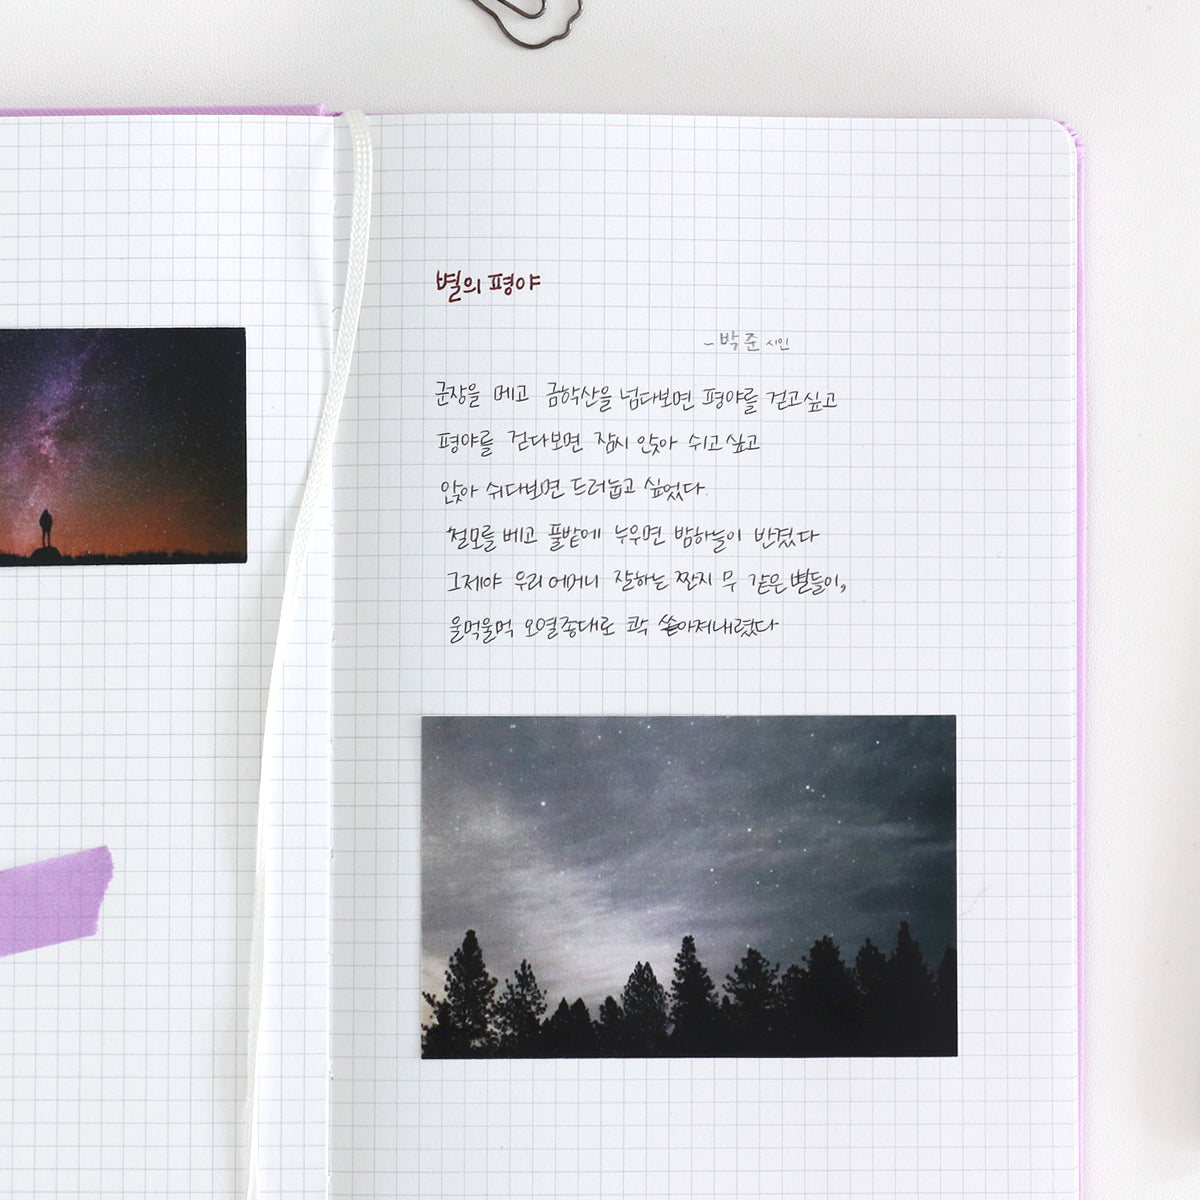 별의 평야
- 박준 시인
군장을 메고 금학산을 넘다보면 평야를 걷고싶고
평야를 걷다보면 잠시 앉아 쉬고싶고
앉아 쉬다보면 드러눕고 싶었다.
철모를 베고 풀밭에 누우면 밤하늘이 반겼다
그제야 우리 어머니 잘하는 짠지 무 같은 별들이,
울먹울먹 오열종대로 콱 쏟아져내렸다